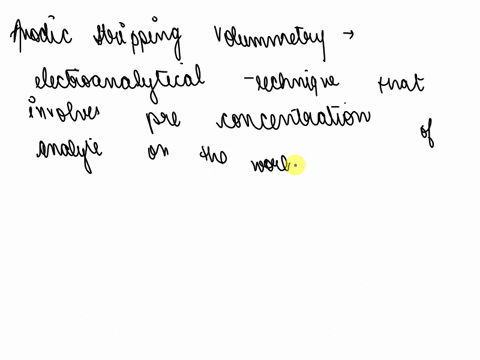 Anodic stripping Volummetry →
electroanalytical technique that
involves pre concentration of
analyte on the work